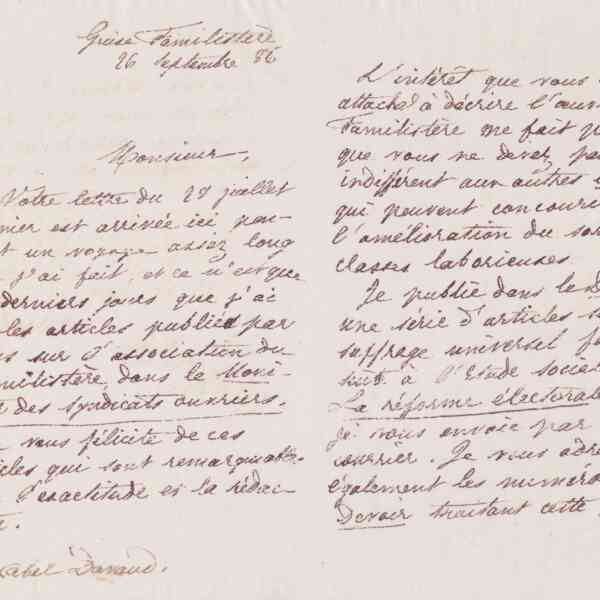 Guise Familistère
26 septembre 86
Monsieur,
Votre lettre du 28 juillet
nier est arrivée ici pen-
t un voyage assez long
j'ai fait, et ce n'est que
derniers jours que j'ai
les articles publiés par
s sur l'association du
milistère, dans le Moni-
des syndicats ouvriers.
vous félicite de ces
cles qui sont remarquables
l'exactitude et la rédac-
L'intérêt que vous
attaché à décrire l'œuv
Familistère me fait p
que vous ne devez pa
indifférent aux autres
qui peuvent concouri
l'amélioration du sor
classes laborieuses.
Je publie dans le D
une série d'articles s
suffrage universel fa
suite à l'Etude socia
La réforme électorale
je vous envoie par
courrier. Je vous adre
également les numéro
Devoir traitant cette